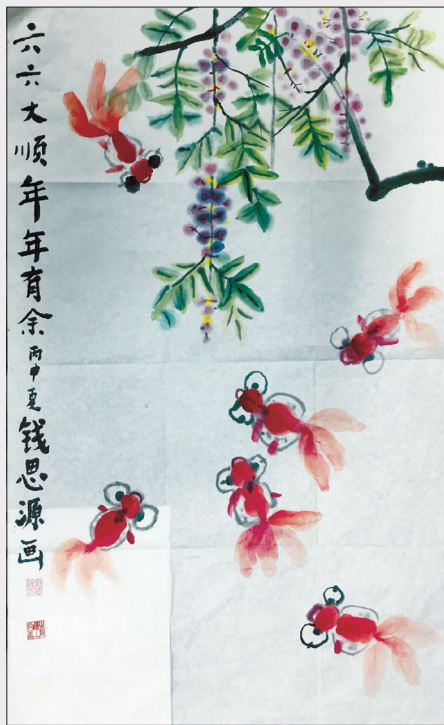 六六大顺年年有余丙申夏钱思源画